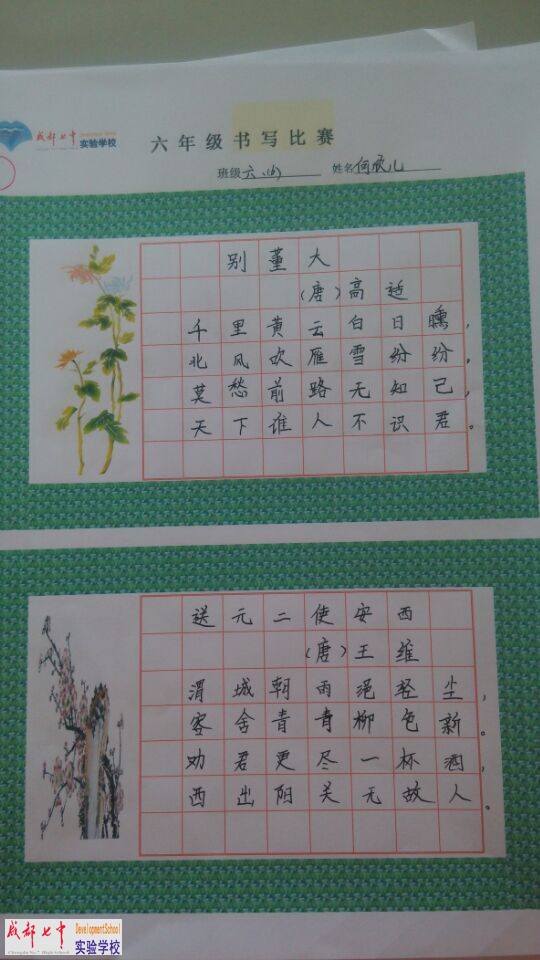 成都七中 Development School
实验学校
六年级书写比赛
班级 六、(6) 姓名 何
别董大
(唐)高适
千里黄云白日曛,
北风吹雁雪纷纷。
莫愁前路无知己,
天下谁人不识君。
送元二使安西
(唐)王维
渭城朝雨浥轻尘,
客舍青青柳色新。
劝君更尽一杯酒,
西出阳关无故人。
成都七中 DevelopmentSchool
Chengdu No.7 High School 实验学校